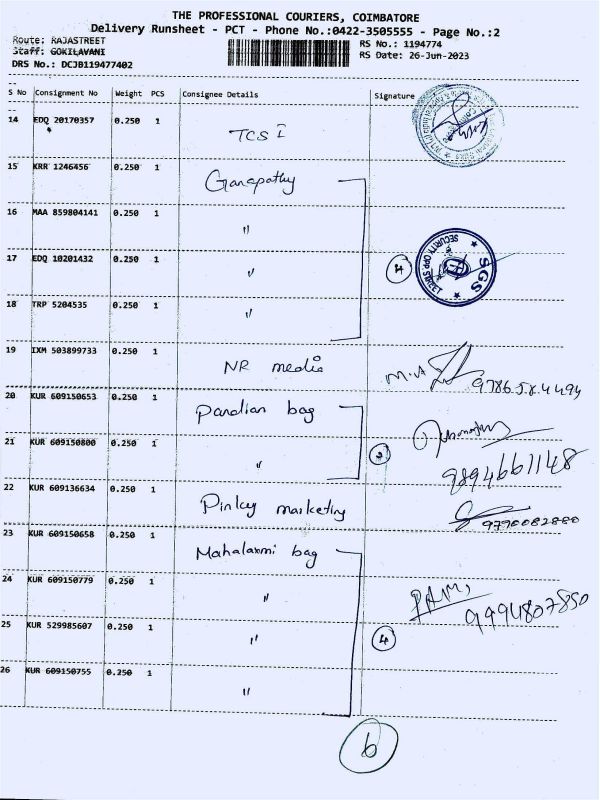 THE PROFESSIONAL COURIERS, COIMBATORE
Delivery Runsheet - PCT - Phone No.:0422-3505555 - Page No.:2
Route: RAJASTREET
RS No.: 1194774
Staff: GOKILAVANI
RS Date: 26-Jun-2023
DRS No.: DCJB119477402
S No Consignment No Weight PCS Consignee Details Signature
14 EDQ 20170357 0.250 1 TCS I
15 KRR 1246456 0.250 1 Ganapathy
16 MAA 859804141 0.250 1 "
17 EDQ 10201432 0.250 1 "
SGS
SECURITY OPP STREET
18 TRP 5204535 0.250 1 "
19 IXM 503899733 0.250 1 NR media
9786584494
20 KUR 609150653 0.250 1 Pandian bag
21 KUR 609150800 0.250 1 "
9894661148
22 KUR 609136634 0.250 1 Pinky marketing
9790082880
23 KUR 609150658 0.250 1 Mahalaxmi bag
24 KUR 609150779 0.250 1 "
9994807850
25 KUR 529985607 0.250 1 "
4
26 KUR 609150755 0.250 1 "
6